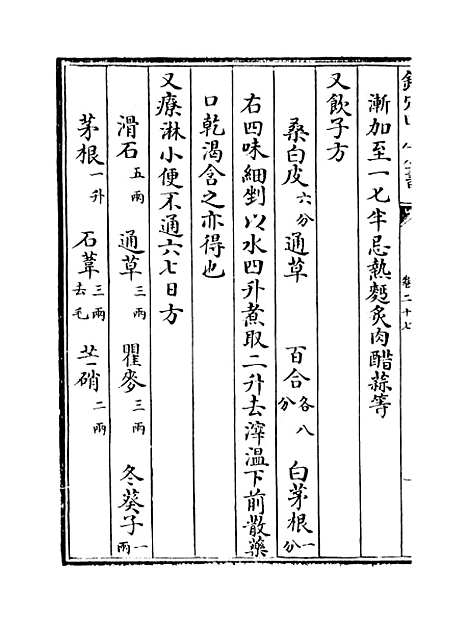 欽定四庫全書
卷二十七
漸加至一七半忌熱麪炙肉醋蒜等
又飲子方
桑白皮六分 通草 百合各八分 白茅根一分
右四味細剉以水四升煮取二升去滓溫下前散藥
口乾渴含之亦得也
又療淋小便不通六七日方
滑石五兩 通草三兩 瞿麥三兩 冬葵子一兩
茅根一升 石葦三兩去毛 芒硝二兩